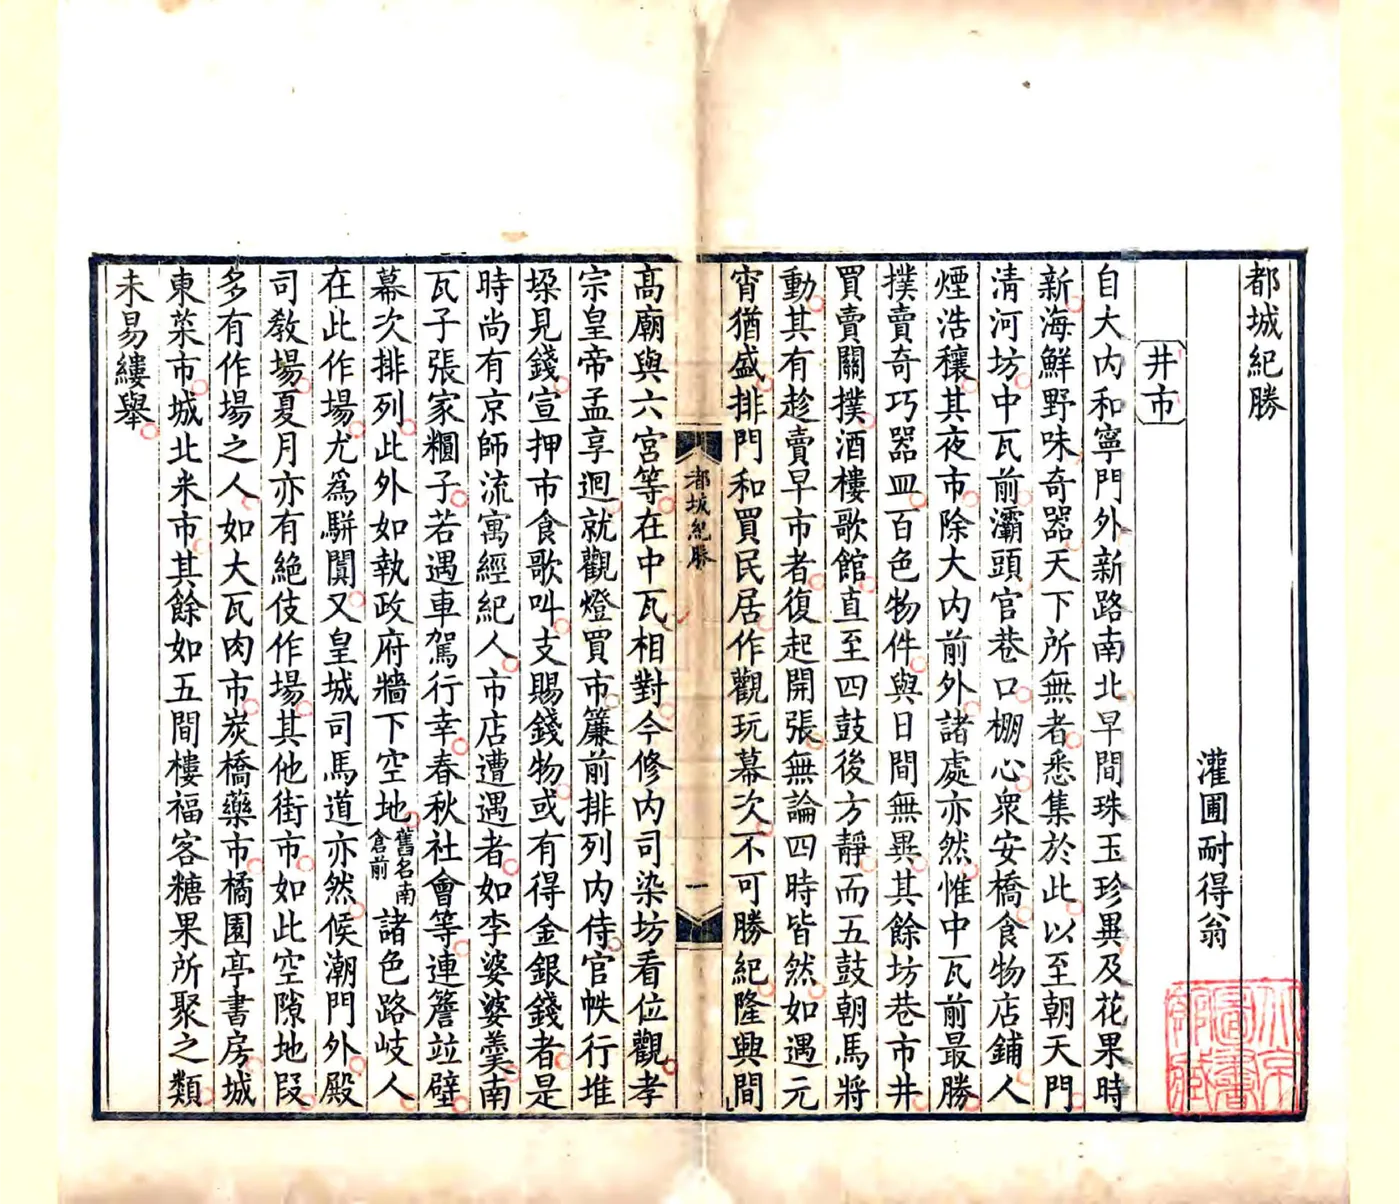 都城紀勝
灌圃耐得翁
井市
自大內和寧門外新路南北早間珠玉珍異及花果時
新海鮮野味奇器天下所無者悉集於此以至朝天門
清河坊中瓦前灞頭官巷口棚心衆安橋食物店鋪人
煙浩穰其夜市除大內前外諸處亦然惟中瓦前最勝
撲賣奇巧器皿百色物件與日間無異其餘坊巷市井
買賣關撲酒樓歌館直至四鼓後方靜而五鼓朝馬將
動其有趁賣早市者復起開張無論四時皆然如遇元
宵猶盛排門和買民居作觀玩幕次不可勝紀隆興間
都城紀勝
一
高廟與六宮等在中瓦相對今修內司染坊看位觀孝
宗皇帝孟享迴就觀燈買市簾前排列內侍官帙行堆
垜見錢宣押市食歌叫支賜錢物或有得金銀錢者是
時尚有京師流寓經紀人市店遭遇者如李婆婆羹南
瓦子張家糰子若遇車駕行幸春秋社會等連簷竝壁
幕次排列此外如執政府牆下空地舊名南倉前諸色路岐人
在此作場尤爲駢闐又皇城司馬道亦然候潮門外殿
司教場夏月亦有絕伎作場其他街市如此空隙地段
多有作場之人如大瓦肉市炭橋藥市橘園亭書房城
東菜市城北米市其餘如五間樓福客糖果所聚之類
未易縷舉